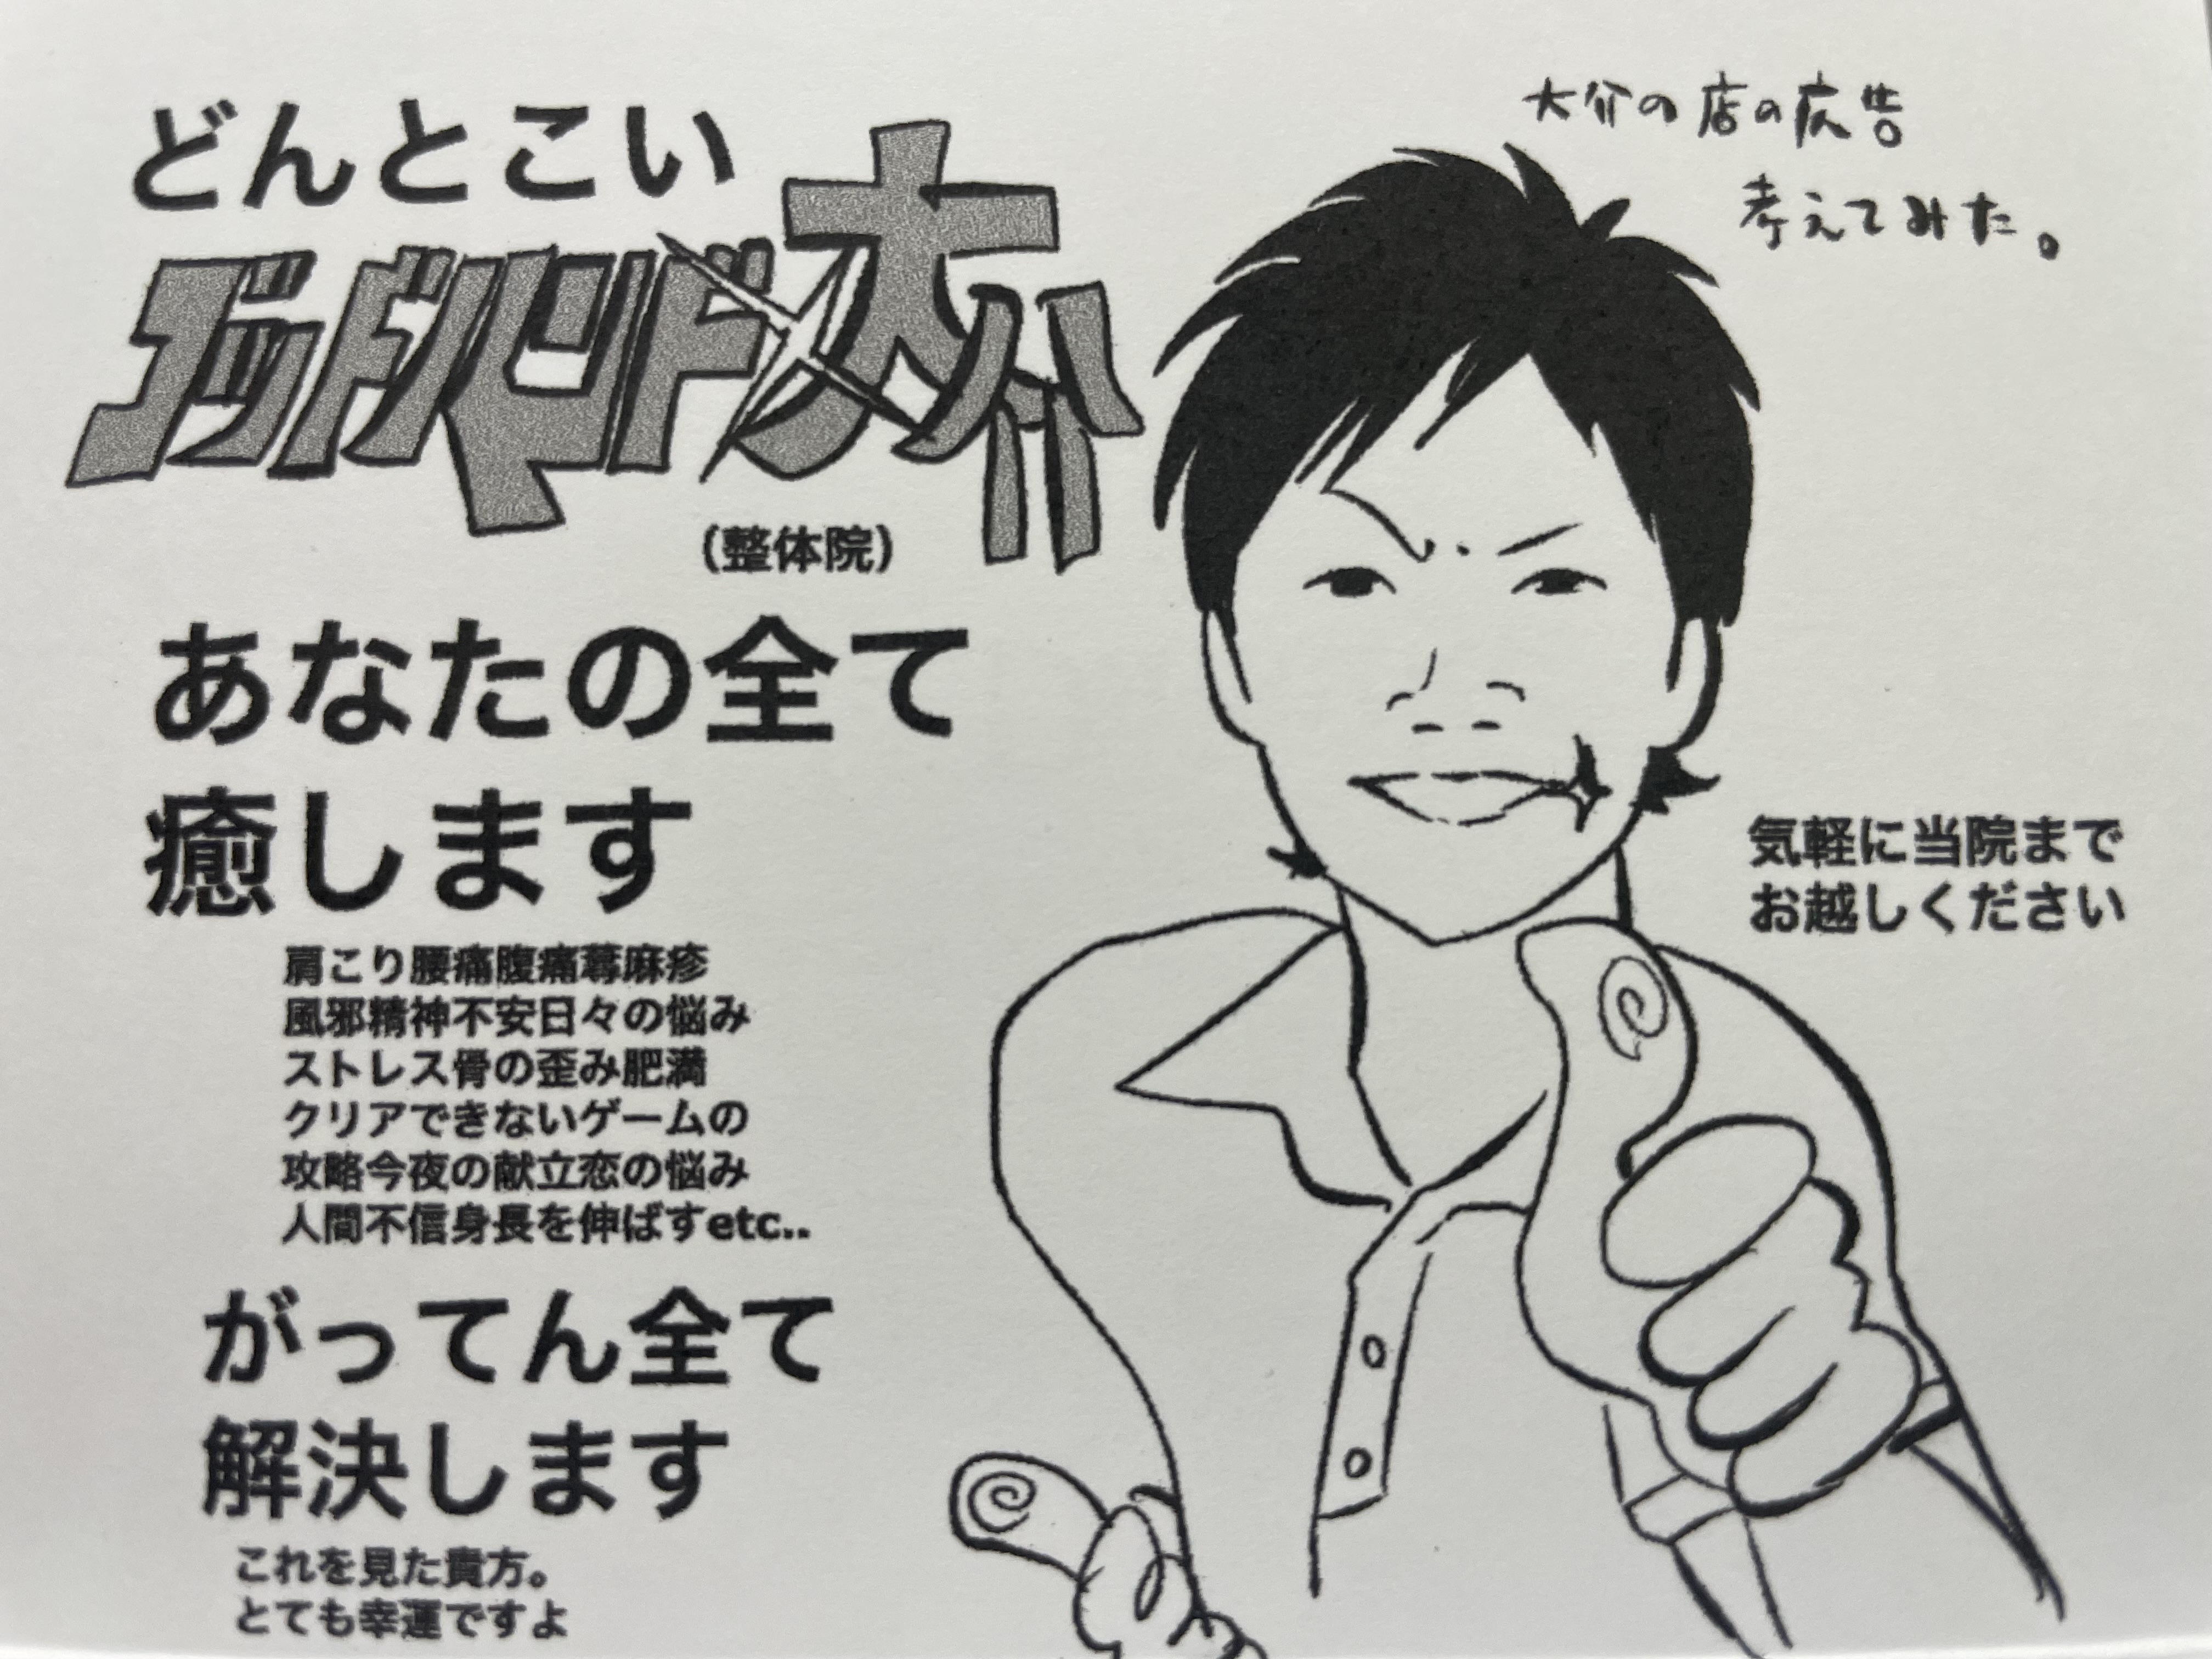 どんとこい
ゴッドハンド大介
（整体院）
あなたの全て
癒します
肩こり腰痛腹痛蕁麻疹
風邪精神不安日々の悩み
ストレス骨の歪み肥満
クリアできないゲームの
攻略今夜の献立恋の悩み
人間不信身長を伸ばすetc..
がってん全て
解決します
これを見た貴方。
とても幸運ですよ
大介の店の広告
考えてみた。
気軽に当院まで
お越しください